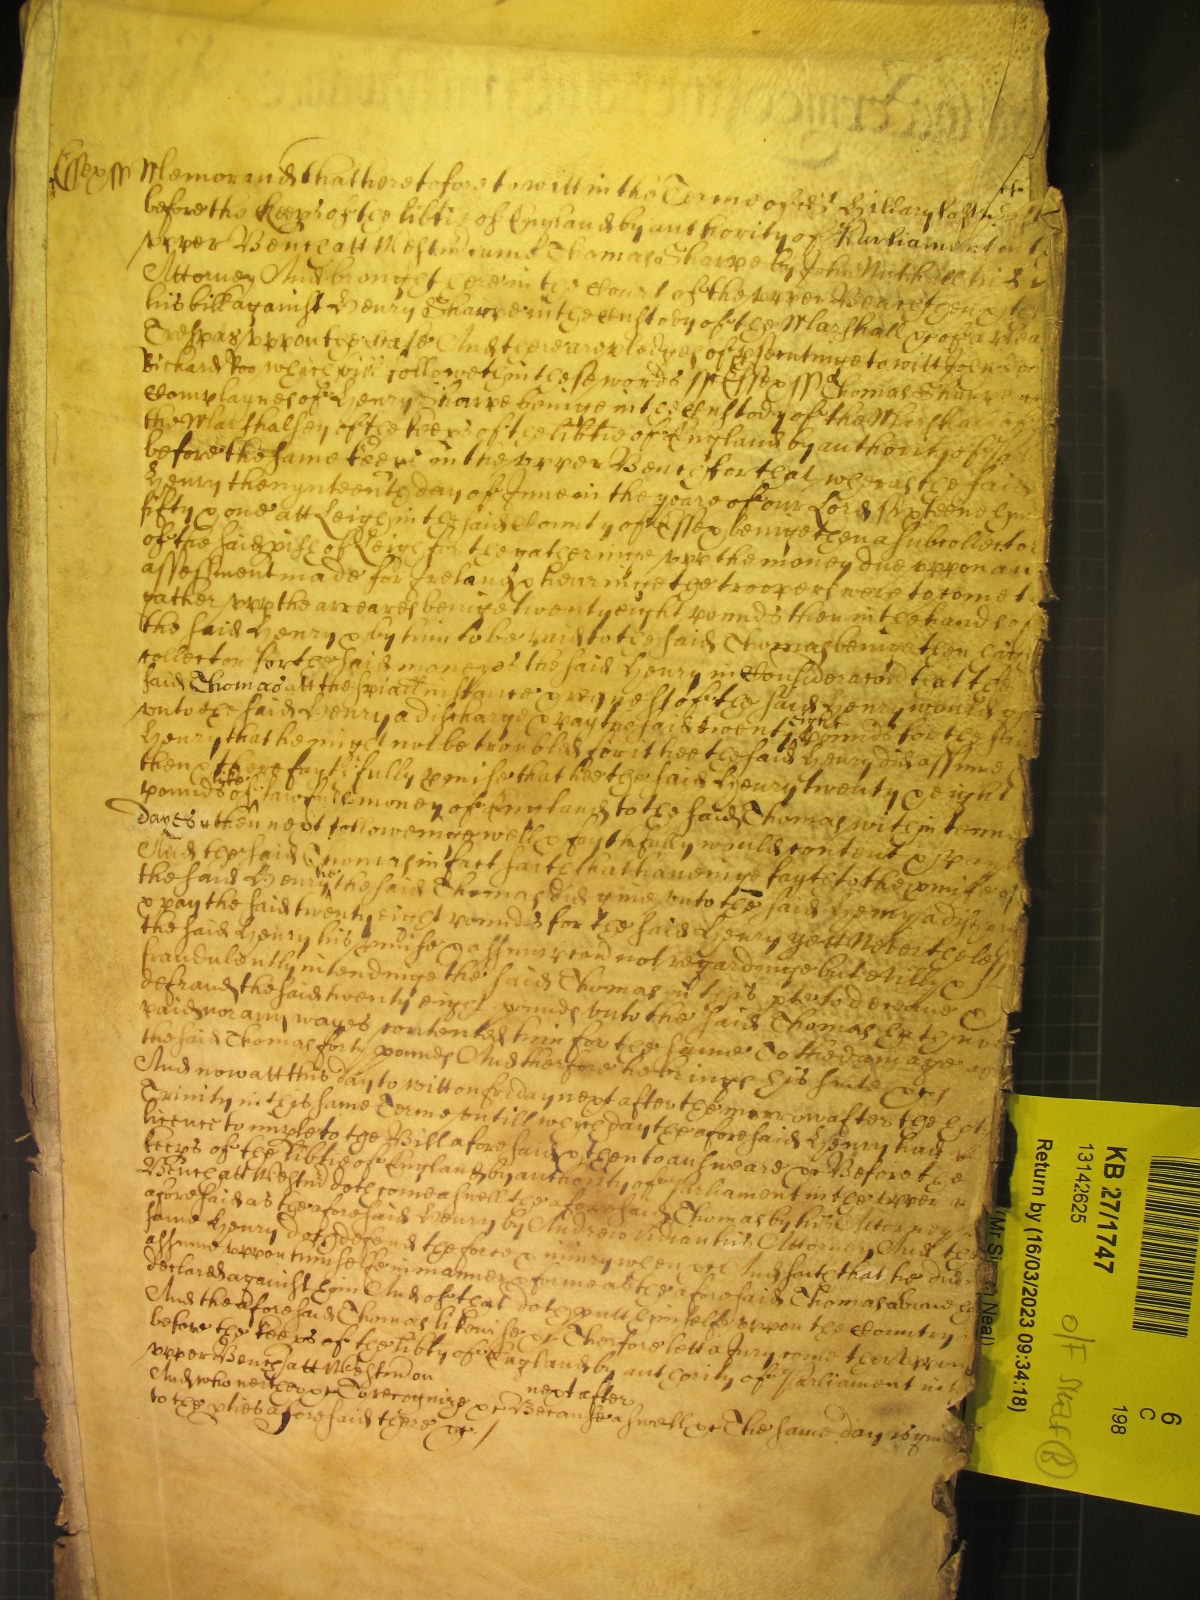 Essex ss Memorand that heretofore to witt in the Terme of St Hillary last past
before the Keeps of the libtie of England by authority of Parliament in the
upper Bench att Westm came Thomas Sharpe by John Nuthall his
Attorney And brought here in the Court of the upper Bench then & there
his bill against Henry Sharpe in the custody of the Marshall &c of a plea
Trespas uppon the case And there are pledges of psecutinge to witt John Doe
Richard Roo which bill followeth in these words ss Essex ss Thomas Sharpe
complaynes of Henry Sharpe beinge in the custody of the Marshall of
the Marshalsey of the Keeps of the libtie of England by authority of Par
before the same Keeps in the upper Bench for that whereas the said
Henry the nynteenth day of June in the yeare of our Lord Sixteene hund
fifty & one att Leigh in the said County of Essex beinge then a subcollector
of the said pish of Leigh for the gatheringe upp the money due uppon an
assessment made for Ireland & hearinge the troopers were to come t
gather upp the arreares beinge twenty eight pounds then in the hands of
the said Henry & by him to be paid to the said Thomas beinge then
collector for the said moneyes the said Henry in Consideracon that the
said Thomas att the spiall instance & request of the said Henry would
unto the said Henry a discharge & pay the said twenty eight pounds for the said
Henry that he might not be troubled for it hee the said Henry did assume
then & there faythfully pmise that hee the said Henry twenty & eight
pounds of like lawfull money of England to the said Thomas within tenn
dayes then next followeinge well & faythfully would content & pay
And the said Thomas in fact saith that haveinge fayth to the pmise of
the said Henry he the said Thomas did give unto the said Henry a discharge
& pay the said twenty eight pounds for the said Henry yett Nevertheless
the said Henry his pmise & assumpcon not regardinge but evilly &
fraudulently intendinge the said Thomas in this pte to deceave &
defraud the said twenty eight pounds unto the said Thomas hath not
paid nor any wayes contented him for the same To the damage of
the said Thomas forty pounds And therfore he brings his suite &c
And now att this day to witt on friday next after the morrow after the holy
Trinity in this same Terme untill which day the aforesaid Henry had
licence to imple to the Bill aforesaid & then to answeare &c Before the
keeps of the libtie of England by authority of Parliament in the upper
Bench att Westm doth come aswell the aforesaid Thomas by his Attorney
aforesaid as the aforesaid Henry by Andrew Vidian his Attorney And the
same Henry doth defend the force & iniury when &c And saith that he did
assume uppon himselfe in manner & forme as the aforesaid Thomas above
declared against him And of that doth putt himselfe uppon the Country
And the aforesaid Thomas likewise &c Therfore lett a Jury come therupon
before the keeps of the libty of England by authority of Parliament in the
upper Bench att Westm on next after
And who neither &c To recognize &c Because aswell &c The same day is given
to the pties aforesaid there &c
KB 27/1747
13142625
Return by (16/03/2023 09:34:18)
6
C
198